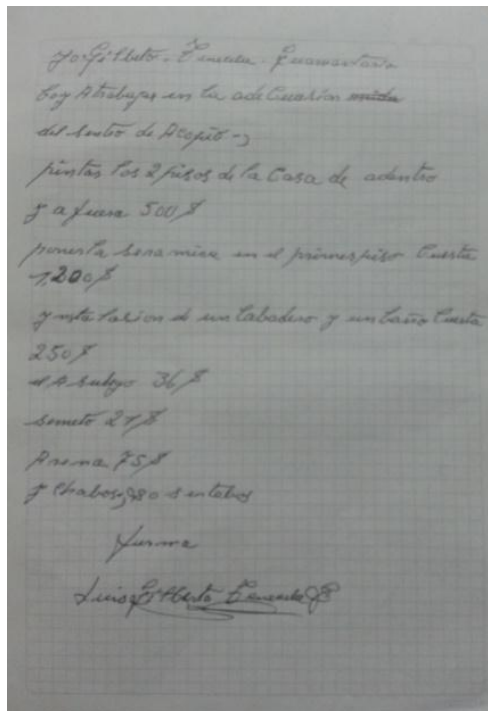 yo Gilberto - Tenneda - Guamantario
boy A trabajar en la adeCuasion
del sentro de Acopio -
pintar los 2 pisos de la Casa de adentro
y a fuera 500 $
poner la seramica en el primer piso Cuesta
1,200 $
y nstalasion de un labadero y un baño Cuesta
250 $
el A sulejo 36 $
semeto 21 $
Arena 75 $
y Chabos 80 sentabos
furma
Luis Gilberto